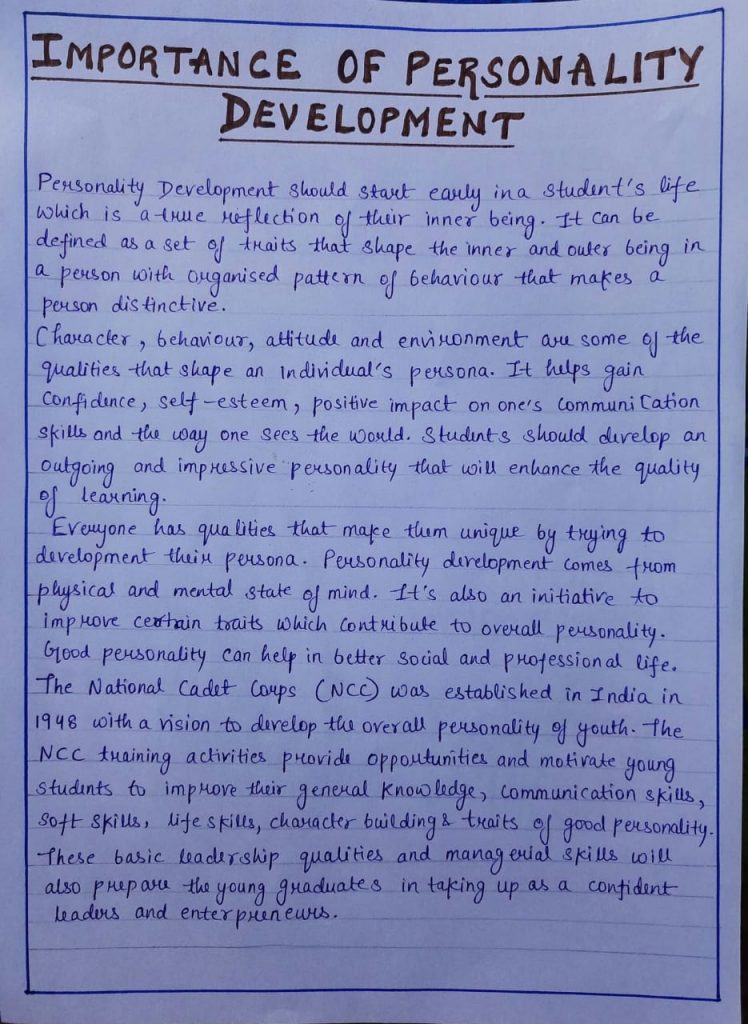 IMPORTANCE OF PERSONALITY
DEVELOPMENT
Personality Development should start early in a student's life
which is a true reflection of their inner being. It can be
defined as a set of traits that shape the inner and outer being in
a person with organised pattern of behaviour that makes a
person distinctive.
Character, behaviour, attitude and environment are some of the
qualities that shape an individual's persona. It helps gain
confidence, self-esteem, positive impact on one's communication
skills and the way one sees the world. Students should develop an
outgoing and impressive personality that will enhance the quality
of learning.
Everyone has qualities that make them unique by trying to
development their persona. Personality development comes from
physical and mental state of mind. It's also an initiative to
improve certain traits which contribute to overall personality.
Good personality can help in better social and professional life.
The National Cadet Corps (NCC) was established in India in
1948 with a vision to develop the overall personality of youth. The
NCC training activities provide opportunities and motivate young
students to improve their general knowledge, communication skills,
soft skills, life skills, character building & traits of good personality.
These basic leadership qualities and managerial skills will
also prepare the young graduates in taking up as a confident
leaders and enterpreneurs.